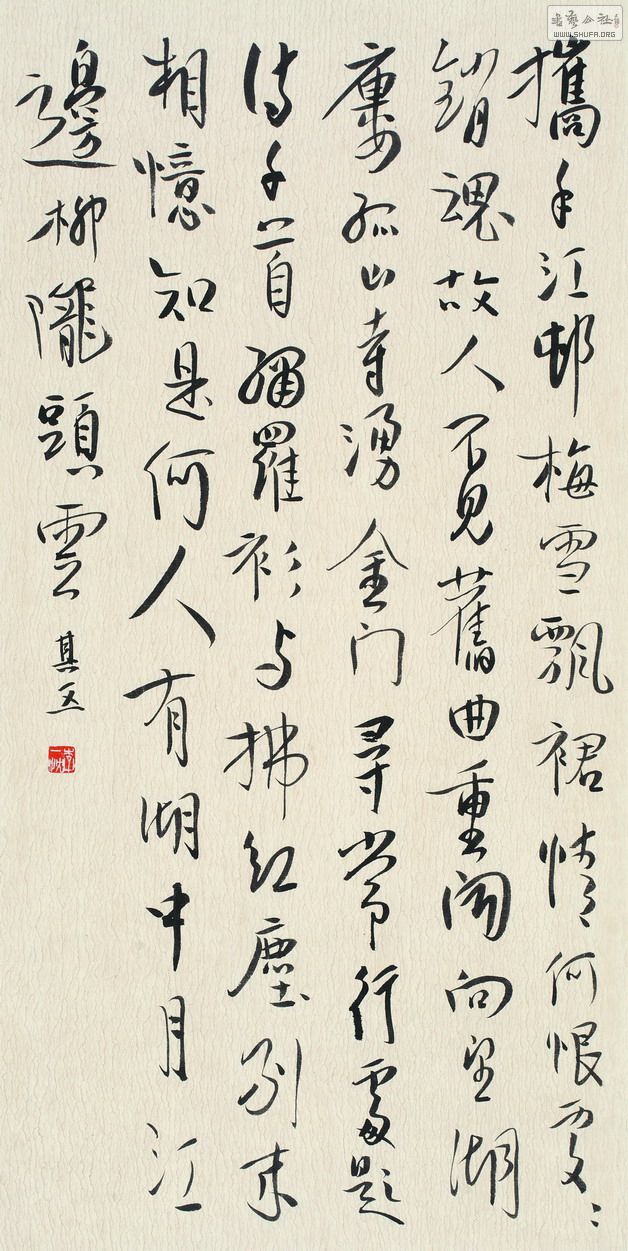 攜手江邨梅雪飄裙情何恨處〻
銷魂故人不見舊曲重聞向望湖
廔孤山寺湧金门尋常行處題
詩千首繡羅衫与拂紅塵別来
相憶知是何人有湖中月江
邊柳隴頭雲 其五
書藝公社
WWW.SHUFA.ORG